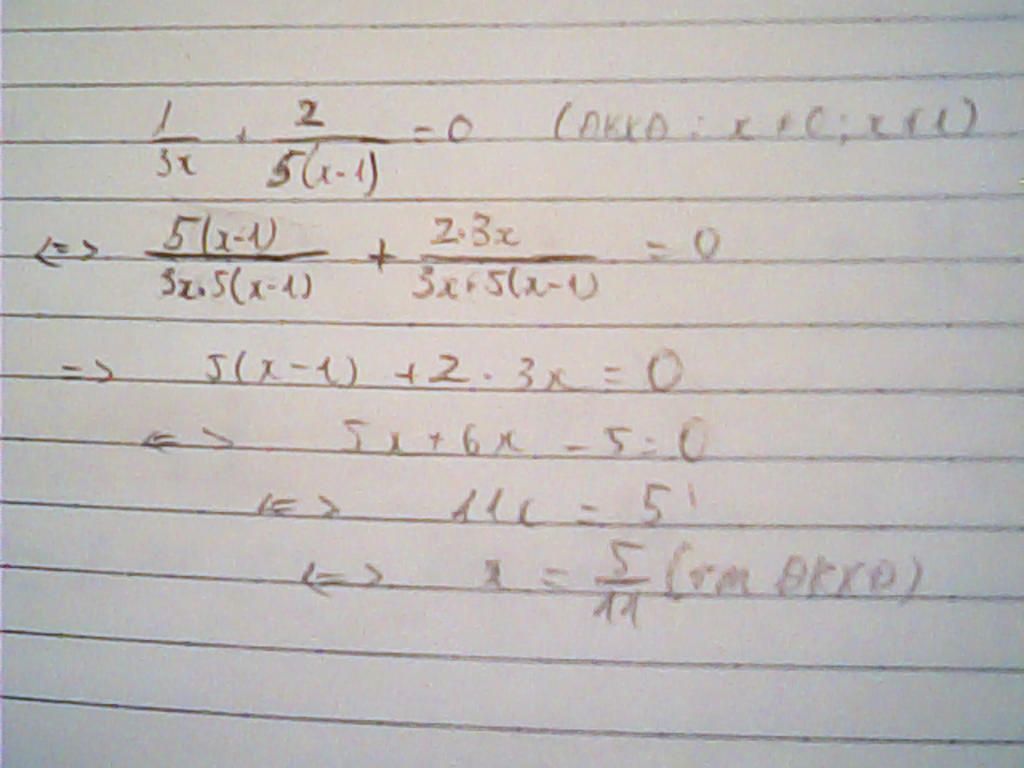 1/3x + 2/5(x-1) = 0 (ĐKXĐ: x ≠ 0; x ≠ 1)
<=> 5(x-1)/3x.5(x-1) + 2.3x/3x.5(x-1) = 0
=> 5(x-1) + 2.3x = 0
<=> 5x + 6x - 5 = 0
<=> 11x = 5
<=> x = 5/11 (TM ĐKXĐ)